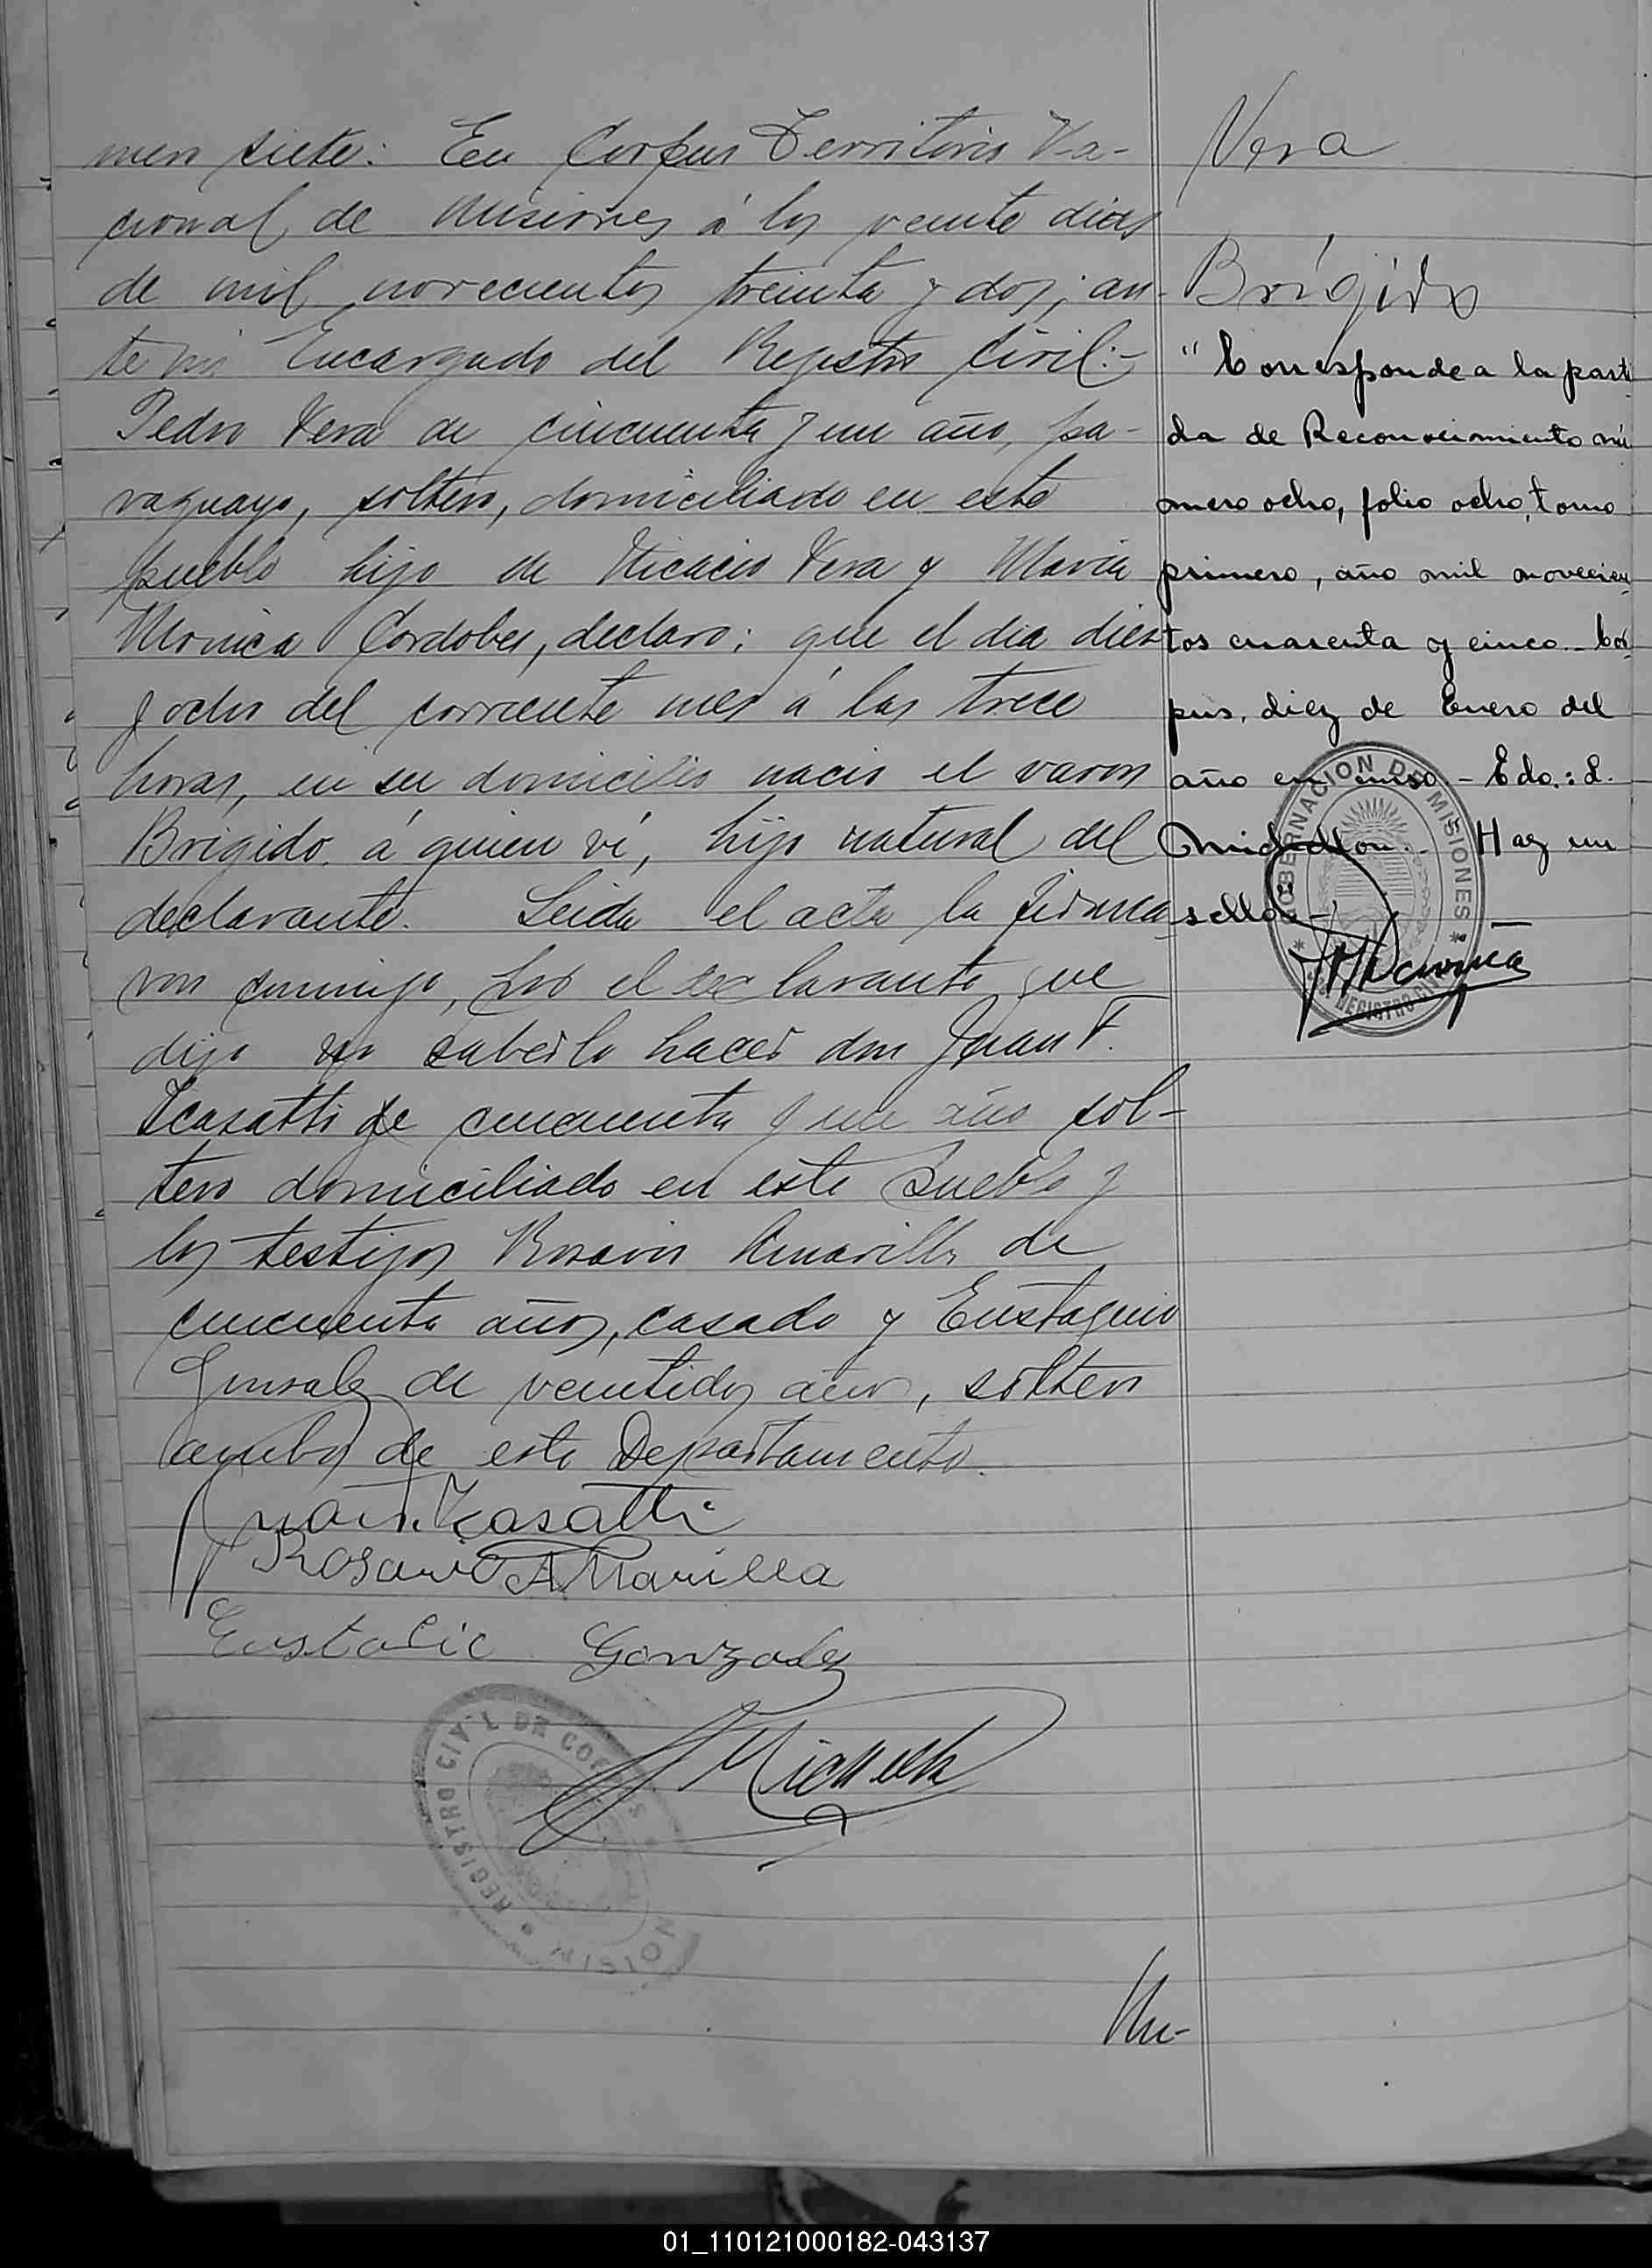 mero siete: En Corpus Territorio Na-
cional de Misiones á los veinte dias
de mil novecientos treinta y dos; an-
te mi Encargado del Registro Civil:-
Pedro Vera de cincuenta y un año, pa-
raguayo, soltero, domiciliado en este
pueblo hijo de Nicacio Vera y Maria
Monica Cordobes, declaro: que el dia diez
y ocho del corriente mes á las trece
horas, en su domicilio nacio el varon
Brigido, á quien ví, hijo natural del
declarante. Leida el acta la firma-
ron conmigo, por el declarante que
dijo no saberlo hacer don Juan F.
de cincuenta y un año sol-
tero domiciliado en este pueblo y
los testigos Rosario Amarilla de
cincuenta años, casado y Eustaquio
Gonsalez de veintidos años, soltero
ambos de este Departamento.
Rosario AMarilla
Gonzalez
REGISTRO CIVIL DE CORPUS
Nu-
Vera
Brígido
"Corresponde a la parti
da de Reconocimiento nú
mero ocho, folio ocho, tomo
primero, año mil novecien
tos cuarenta y cinco.- Cor
pus, diez de Enero del
año en curso - Edo.: L.
Hay un
sello.-
GOBERNACION DE MISIONES
REGISTRO CIVIL
01_110121000182-043137